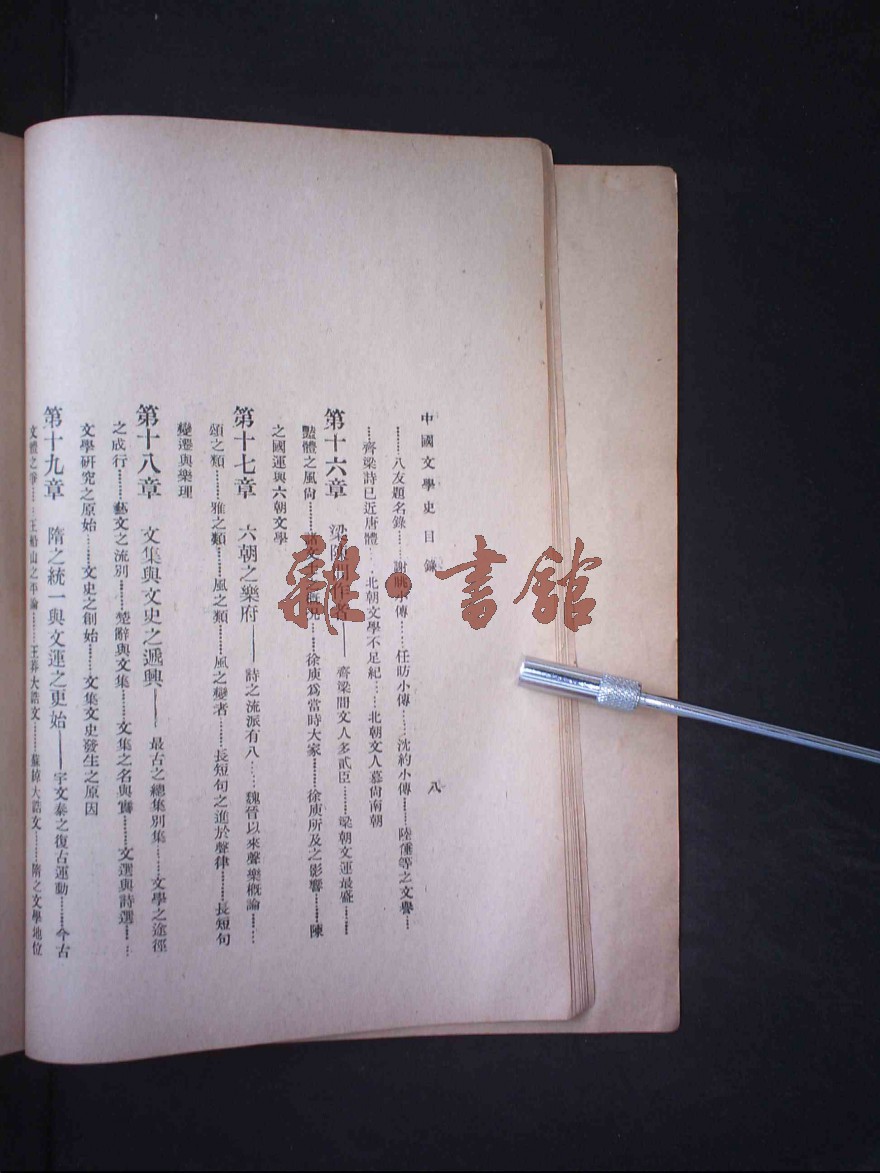 中國文學史 目錄 八
……八友題名錄……謝朓小傳……任昉小傳……沈約小傳……陸倕等之文譽……
齊梁詩已近唐體……北朝文學不足紀……北朝文人慕尙南朝
第十六章 梁陳間作者——齊梁間文人多貳臣……梁朝文運最盛……
豔體之風尙……諸文士概況……徐庾爲當時大家……徐庾所及之影響……陳
之國運與六朝文學
第十七章 六朝之樂府——詩之流派有八……魏晉以來聲樂概論……
頌之類……雅之類……風之類……風之變者……長短句之進於聲律……長短句
變遷與樂理
第十八章 文集與文史之遞興——最古之總集別集……文學之途徑
之成行……藝文之流別……楚辭與文集……文集之名與實……文選與詩選……
文學研究之原始……文史之創始……文集文史發生之原因
第十九章 隋之統一與文運之更始——宇文泰之復古運動……今古
文體之爭……王船山之平論……王莽大誥文……蘇綽大誥文……隋之文學地位
雜·書館